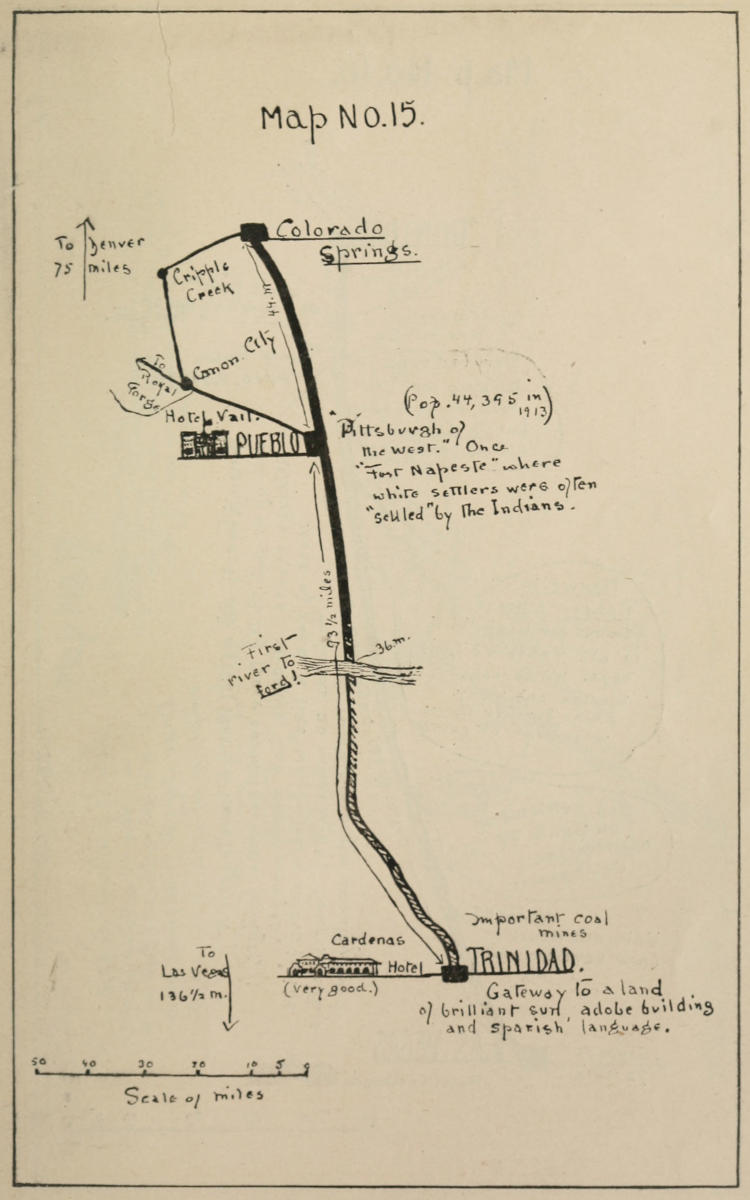 Map No.15.
Colorado
Springs.
To Denver
75 miles
Cripple
Creek
44 m
Canon City
To
Royal
Gorge
Hotel Vail.
PUEBLO
(Pop. 44,395 in
1913)
"Pittsburgh of
the west." Once
"Fort Napeste" where
white settlers were often
"settled" by the Indians.
93 1/2 miles
36 m.
First
river to
ford!
Important coal
mines
TRINIDAD.
Cardenas
Hotel
(very good.)
To
Las Vegas
136 1/2 m.
Gateway to a land
of brilliant sun, adobe building
and spanish language.
50 40 30 20 10 5 0
Scale of miles